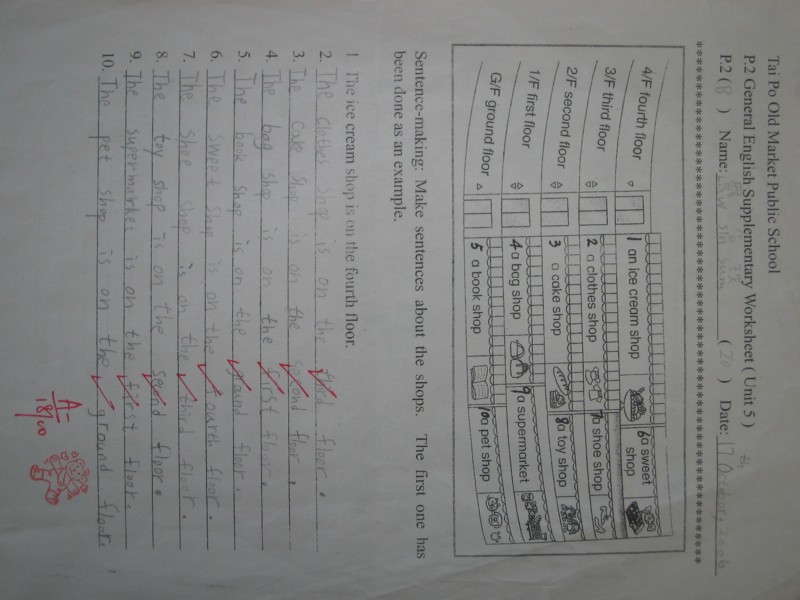 Tai Po Old Market Public School
P.2 General English Supplementary Worksheet ( Unit 5 )
P.2 ( B ) Name: sin ( 20 ) Date: 17 October,
********************************************************
4/F fourth floor 1 an ice cream shop 6 a sweet shop
3/F third floor 2 a clothes shop 7 a shoe shop
2/F second floor 3 a cake shop 8 a toy shop
1/F first floor 4 a bag shop 9 a supermarket
G/F ground floor 5 a book shop 10 a pet shop
Sentence-making: Make sentences about the shops. The first one has
been done as an example.
1 The ice cream shop is on the fourth floor.
2. The clothes shop is on the third floor.
3. The cake shop is on the second floor.
4. The bag shop is on the first floor.
5. The book shop is on the ground floor.
6. The sweet shop is on the fourth floor.
7. The shoe shop is on the third floor.
8. The toy shop is on the second floor.
9. The supermarket is on the first floor.
10. The pet shop is on the ground floor.
A-